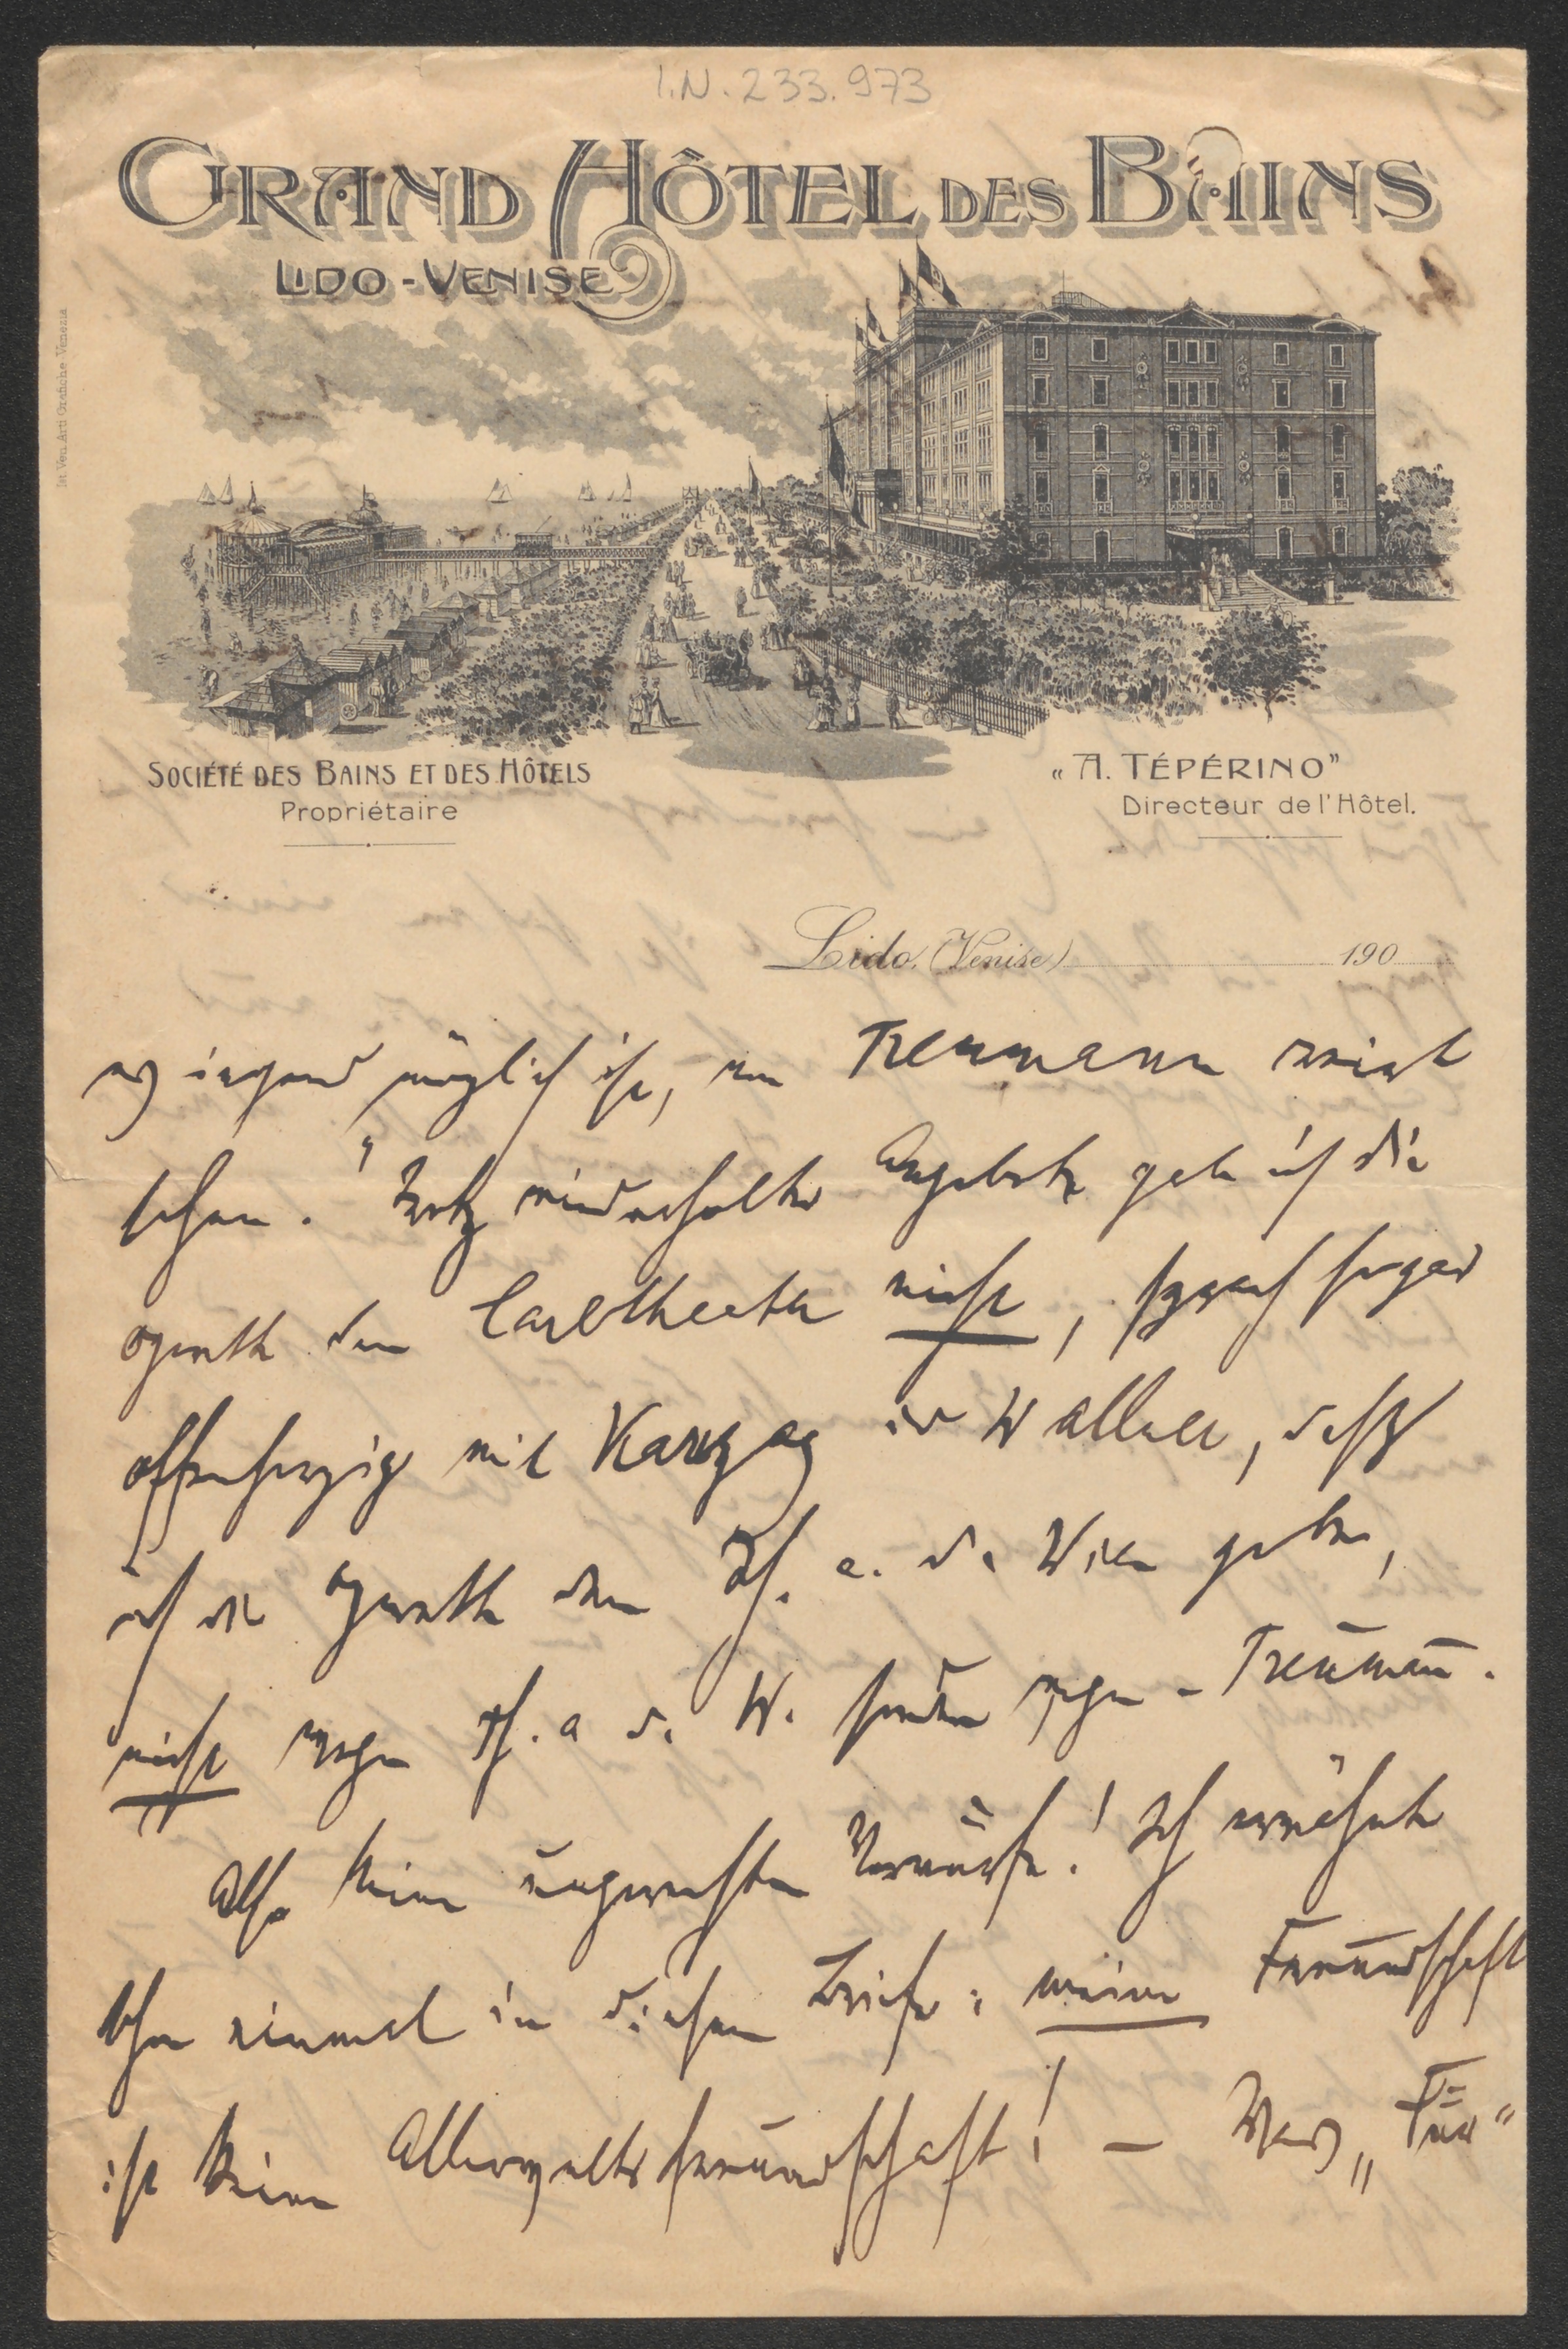 I.N. 233.973
GRAND HÔTEL DES BAINS
LIDO - VENISE
Ist. Ven. Arti Grafiche Venezia
SOCIÉTÉ DES BAINS ET DES HÔTELS
Propriétaire
„A. TÉPÉRINO”
Directeur de l'Hôtel.
Lido, (Venise) 190
es irgend möglich ist, um Treumann reißt
schon." Trotz wiederholter Angebote gebe ich die
Operette dem Carltheater nicht, sprach sogar
offenherzig mit Karczag und Wallner, daß
ich die Operette dem Th. a. d. Wien geben,
nicht wegen Th. a. d. W. sondern wegen – Treumann.
Also keine ungerechten Vorwürfe! Ich erwähnte
schon einmal in diesem Briefe: meine Freundschaft
ist keine Allerweltsfreundschaft! – Was „Für“